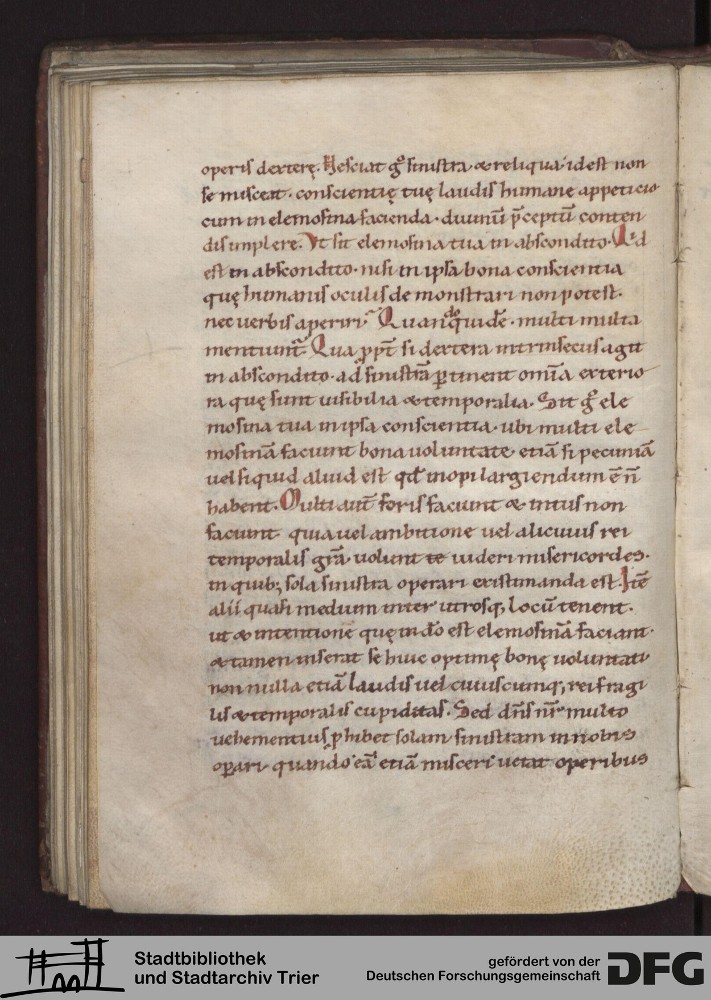 operis dexterę. Nesciat gͦ sinistra & reliqua id est non
se misceat. conscientię tuę laudis humane appeticio
cum in elemosina facienda. diuinū p̄ceptū conten
dis implere. Vt sit elemosina tua in abscondito. Id
est in abscondito. nisi in ipsa bona conscientia
quę humanis oculis de monstrari non potest.
nec uerbis aperiri. multi multa
mentiunt᷑. Qua ꝓpt̄ si dextera intrinsecus agit
in abscondito. ad sinistrā ꝑtinent omīa exterio
ra quę sunt uisibilia & temporalia. Sit gͦ ele
mosina tua in ipsa conscientia. ubi multi ele
mosinā faciunt bona uoluntate etiā si pecuniā
uel si quid aliud est qd̄ inopi largiendum ē n̄
habent. Multi aut̄ foris faciunt & intus non
faciunt. quia uel ambitione uel alicuius rei
temporalis grā uolunt uideri misericordes.
in quib; sola sinistra operari existimanda est. Itē
alii quasi medium inter utrosq; locū tenent.
ut & intentione quę in dō est elemosinā faciant.
& tamen inserat se huic optimę bonę uoluntati
non nulla etiā laudis uel cuiuscumq; rei fragi
lis & temporalis cupiditas. Sed dn̄s nr̄ multo
uehementius ꝓhibet solam sinistram in nobis
oꝑari. quando eā etiā misceri uetat operibus
Stadtbibliothek
und Stadtarchiv Trier
gefördert von der
Deutschen Forschungsgemeinschaft
DFG